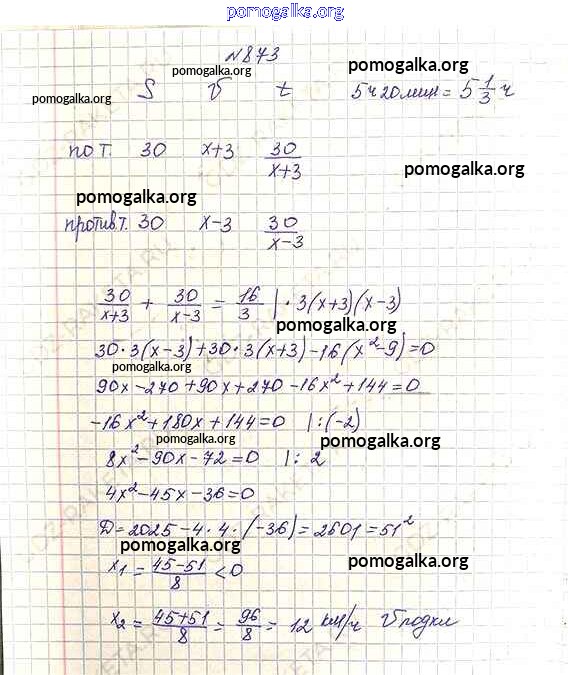 pomogalka.org
№873
pomogalka.org pomogalka.org
pomogalka.org S V t 5 ч 20 мин = 5 1/3 ч
по т. 30 x+3 30/(x+3)
pomogalka.org
pomogalka.org
против т. 30 x-3 30/(x-3)
30/(x+3) + 30/(x-3) = 16/3 | · 3(x+3)(x-3)
pomogalka.org
30·3(x-3)+30·3(x+3)-16(x²-9)=0
pomogalka.org
90x-270+90x+270-16x²+144=0
-16x²+180x+144=0 |:(-2)
pomogalka.org pomogalka.org
8x²-90x-72=0 |: 2
4x²-45x-36=0
D=2025-4·4·(-36)=2601=51²
pomogalka.org
x₁=(45-51)/8<0
pomogalka.org
x₂=(45+51)/8=96/8=12 км/ч V лодки